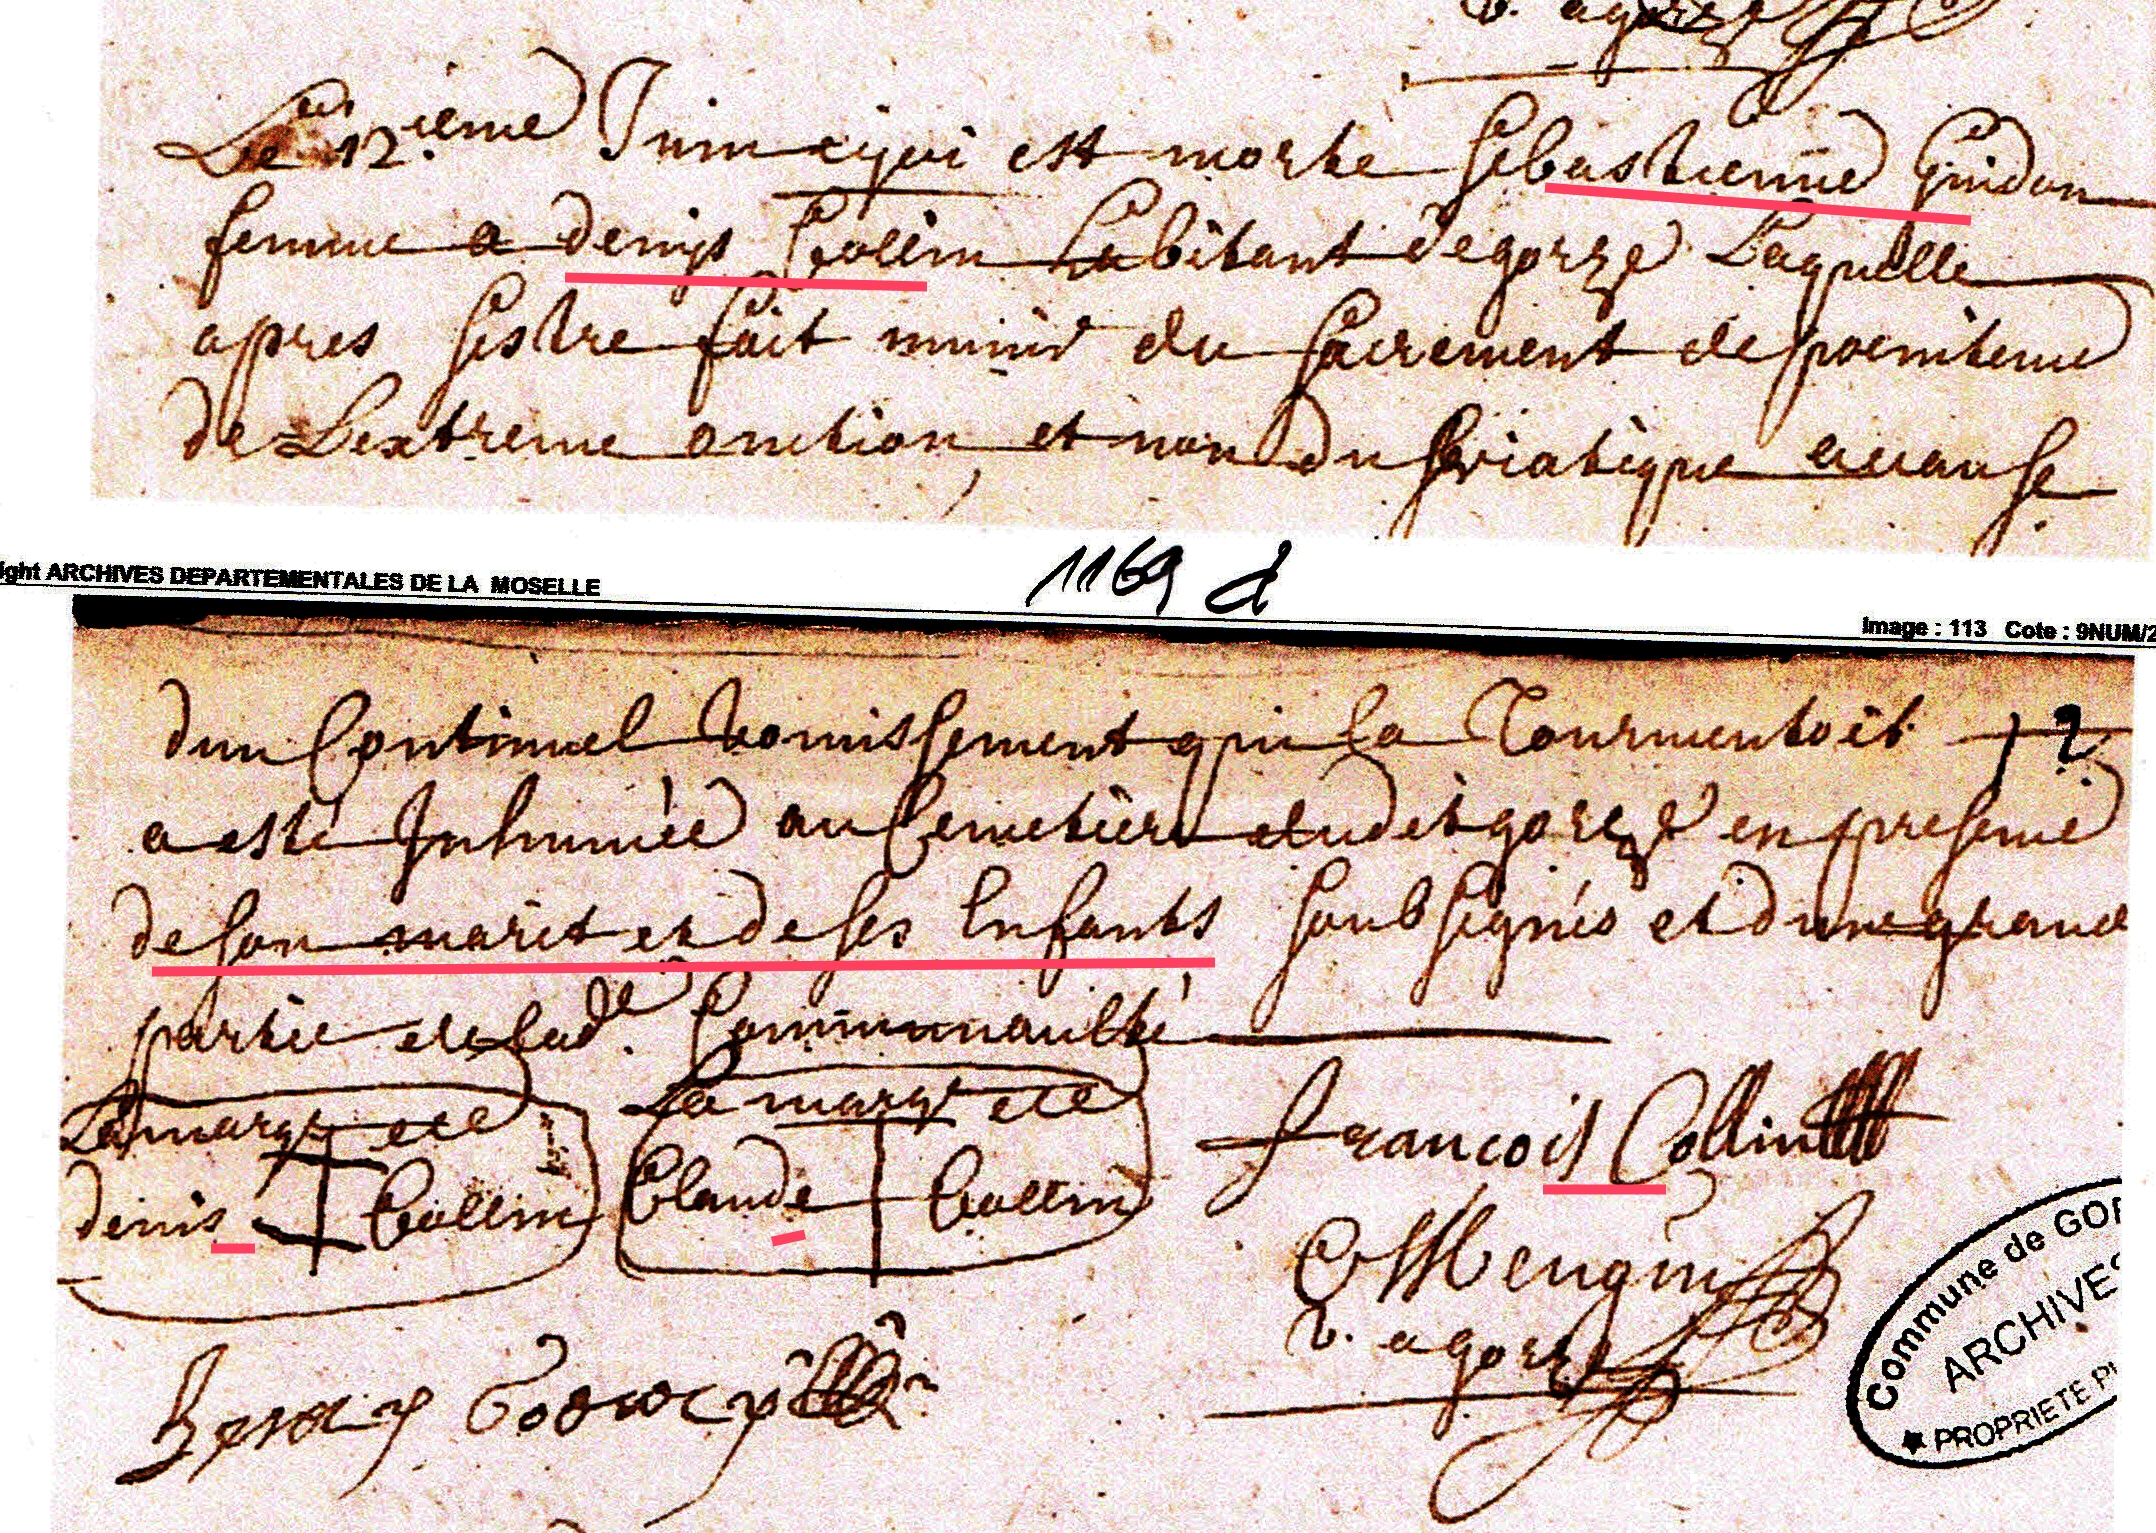 v. agorze
Le 12.ieme Juin est morte Sebastienne Guidon
femme a denys Collin habitant de gorze Laquelle
apres sestre fait munir du sacrement de poenitence
de Lextreme onction, et non du viatique a cause
ight ARCHIVES DEPARTEMENTALES DE LA MOSELLE
1169 d
Image : 113 Cote : 9NUM/2
dun Continuel vomissement qui la Tourmentoit, 2
a esté Inhumée au Cemetiere dudit gorze en presence
de son marit et de ses Enfants soubsignés et dune grand
partie de lad.e Communaulté
La marq de
denis Collin
La marq de
Claude Collin
francois Collin
C Mengin
v. agorze
Commune de GOR
ARCHIVES
PROPRIETE PU